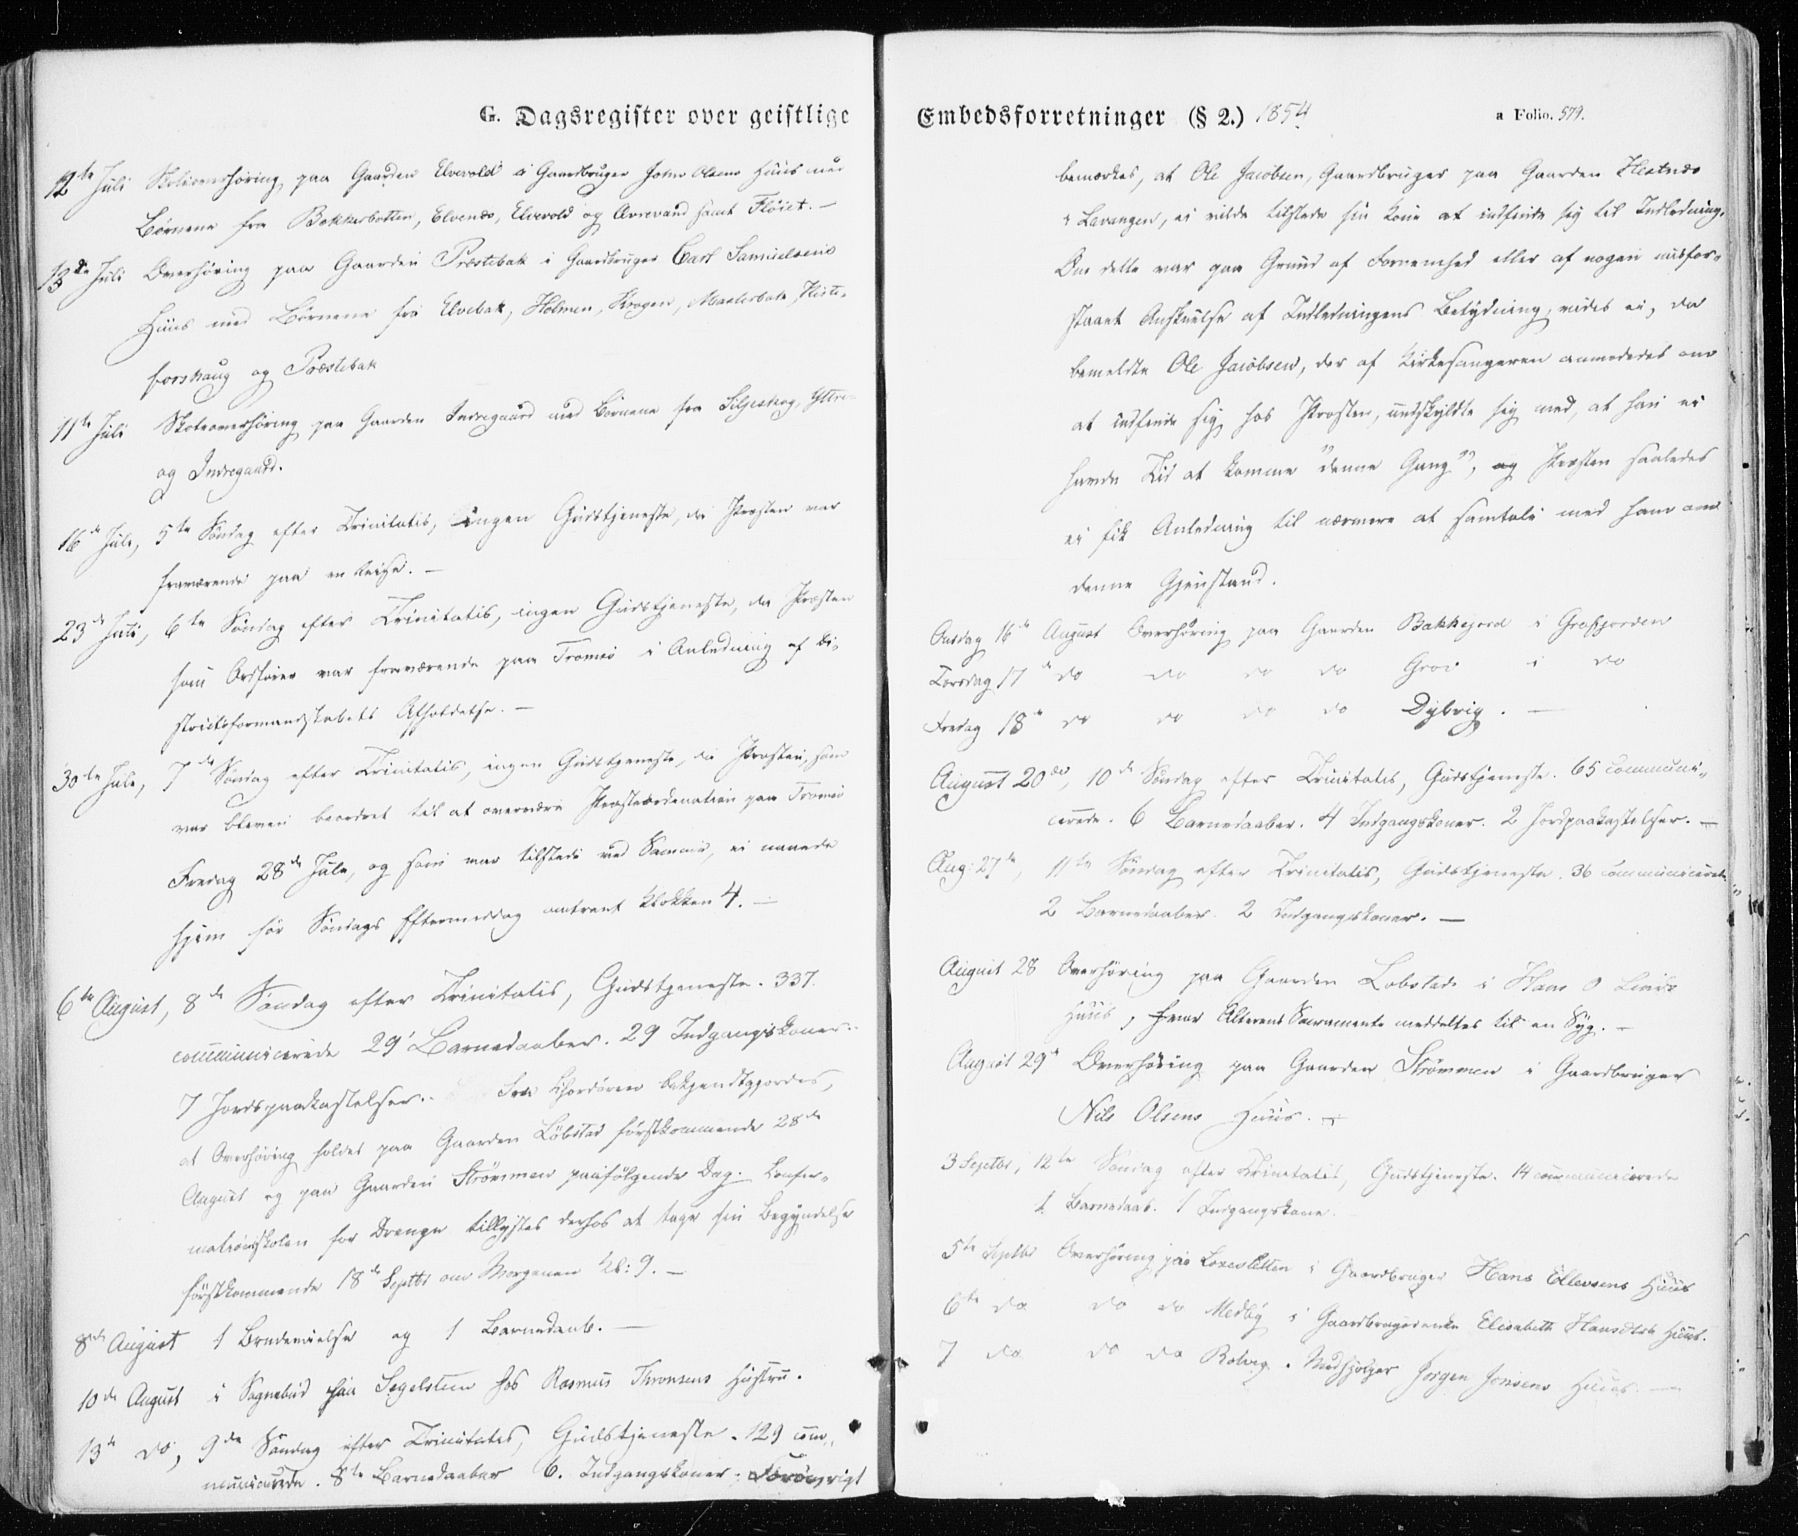 G. Dagsregister over geistlige
12te Juli Skoleoverhöring paa Gaarden Elvevold i Gaardbruger Johns Olsens Huus med
Börnene fra Bakkerbotten, Elvenæs, Elvevold og Avrevand samt Flöiet. —
13de Juli Overhöring paa Gaarden Præstebak i Gaardbruger Carl Samuelsens
Huus med Börnene fra Elvebak, Holmen, Krogen, Marterbak,
forshaug og Præstebak
11te Juli Skoleoverhöring paa Gaarden Indregaard med Börnene fra Seljeskog, Yttre-
og Indregaard.
16de Juli, 5te Söndag efter Trinitatis, ingen Gudstjeneste, da Præsten var
fraværende paa en Reise. —
23de Juli, 6te Söndag efter Trinitatis, ingen Gudstjeneste, da Præsten
som Ordförer var fraværende paa Tromsö i Anledning af Di-
strictsformandskabets Afholdelse. —
30te Juli, 7de Söndag efter Trinitatis, ingen Gudstjeneste, da Præsten, som
var bleven beordret til at overvære Præsteordination paa Tromsö
Fredag 28de Juli, og som var tilstede ved Samme, ei naaede
hjem för Söndags Eftermiddag omtrent Klokken 4. —
6te August, 8de Söndag efter Trinitatis, Gudstjeneste. 337
communicerede 29 Barnedaaber. 29 Indgangskoner.
7 Jordspaakastelser. Fra Chordören bekjendtgjordes,
at Overhöring holdes paa Gaarden Löbstad förstkommende 28de
August og paa Gaarden Strömmen paafölgende Dag. Confir-
mationsskolen for Drenge tillystes derhos at tage sin Begyndelse
förstkommende 18de Septbr om Morgenen Kl: 9. —
8de August 1 Brudevielse og 1 Barnedaab. —
10de August i Sognebud paa Segelsteen hos Rasmus Thronsens Hustru.
13de do, 9de Söndag efter Trinitatis, Gudstjeneste. 129 com-
municerede. 8te Barnedaaber 6. Indgangskoner. Foröevrigt
Embedsforretninger (§ 2.) 1854 a Folio. 579.
bemærkes, at Ole Jacobsen, Gaardbruger paa Gaarden Hestnæs
i Lavangen, ei vilde tilstede sin Kone at indfinde sig til Indledning.
Om dette var paa Grund af Fornemhed eller af nogen misfor-
staaet Anskuelse af Indledningens Betydning, vides ei, da
bemeldte Ole Jacobsen, der af Kirkesangeren anmodedes om
at indfinde sig hos Præsten, undskyldte sig med, at han ei
havde Tid at komme "denne Gang", og Præsten saaledes
ei fik Anledning til nærmere at samtale med ham om
denne Gjenstand.
Onsdag 16de August Overhöring paa Gaarden Bakkejord i Gratfjorden
Torsdag 17de do do do do Grov i do
Fredag 18de do do do do Dybvig. —
August 20de, 10de Söndag efter Trinitatis, Gudstjeneste. 65 communi-
cerede. 6 Barnedaaber. 4 Indgangskoner. 2 Jordpaakastelser. —
Aug: 27de, 11te Söndag efter Trinitatis, Gudstjeneste. 36 communicerede
2 Barnedaaber. 2 Indgangskoner. —
August 28 Overhöring paa Gaarden Löbstad i Hans O
Huus, hvor Alterens Sacramente meddeltes til en Syg. —
August 29de Overhöring paa Gaarden Strömmen i Gaardbruger
Nils Olsens Huus. —
3 Septbr, 12te Söndag efter Trinitatis, Gudstjeneste. 14 communicerede
1 Barnedaab. 1 Indgangskone.
5te Septbr Overhöring paa i Gaardbruger Hans Ellevsens Huus
6te do do do Medby i Gaardbrugerenke Elisabeth Hansdtrs Huus.
7 do do do Rolvog. Jörgen Jensens Huus. —